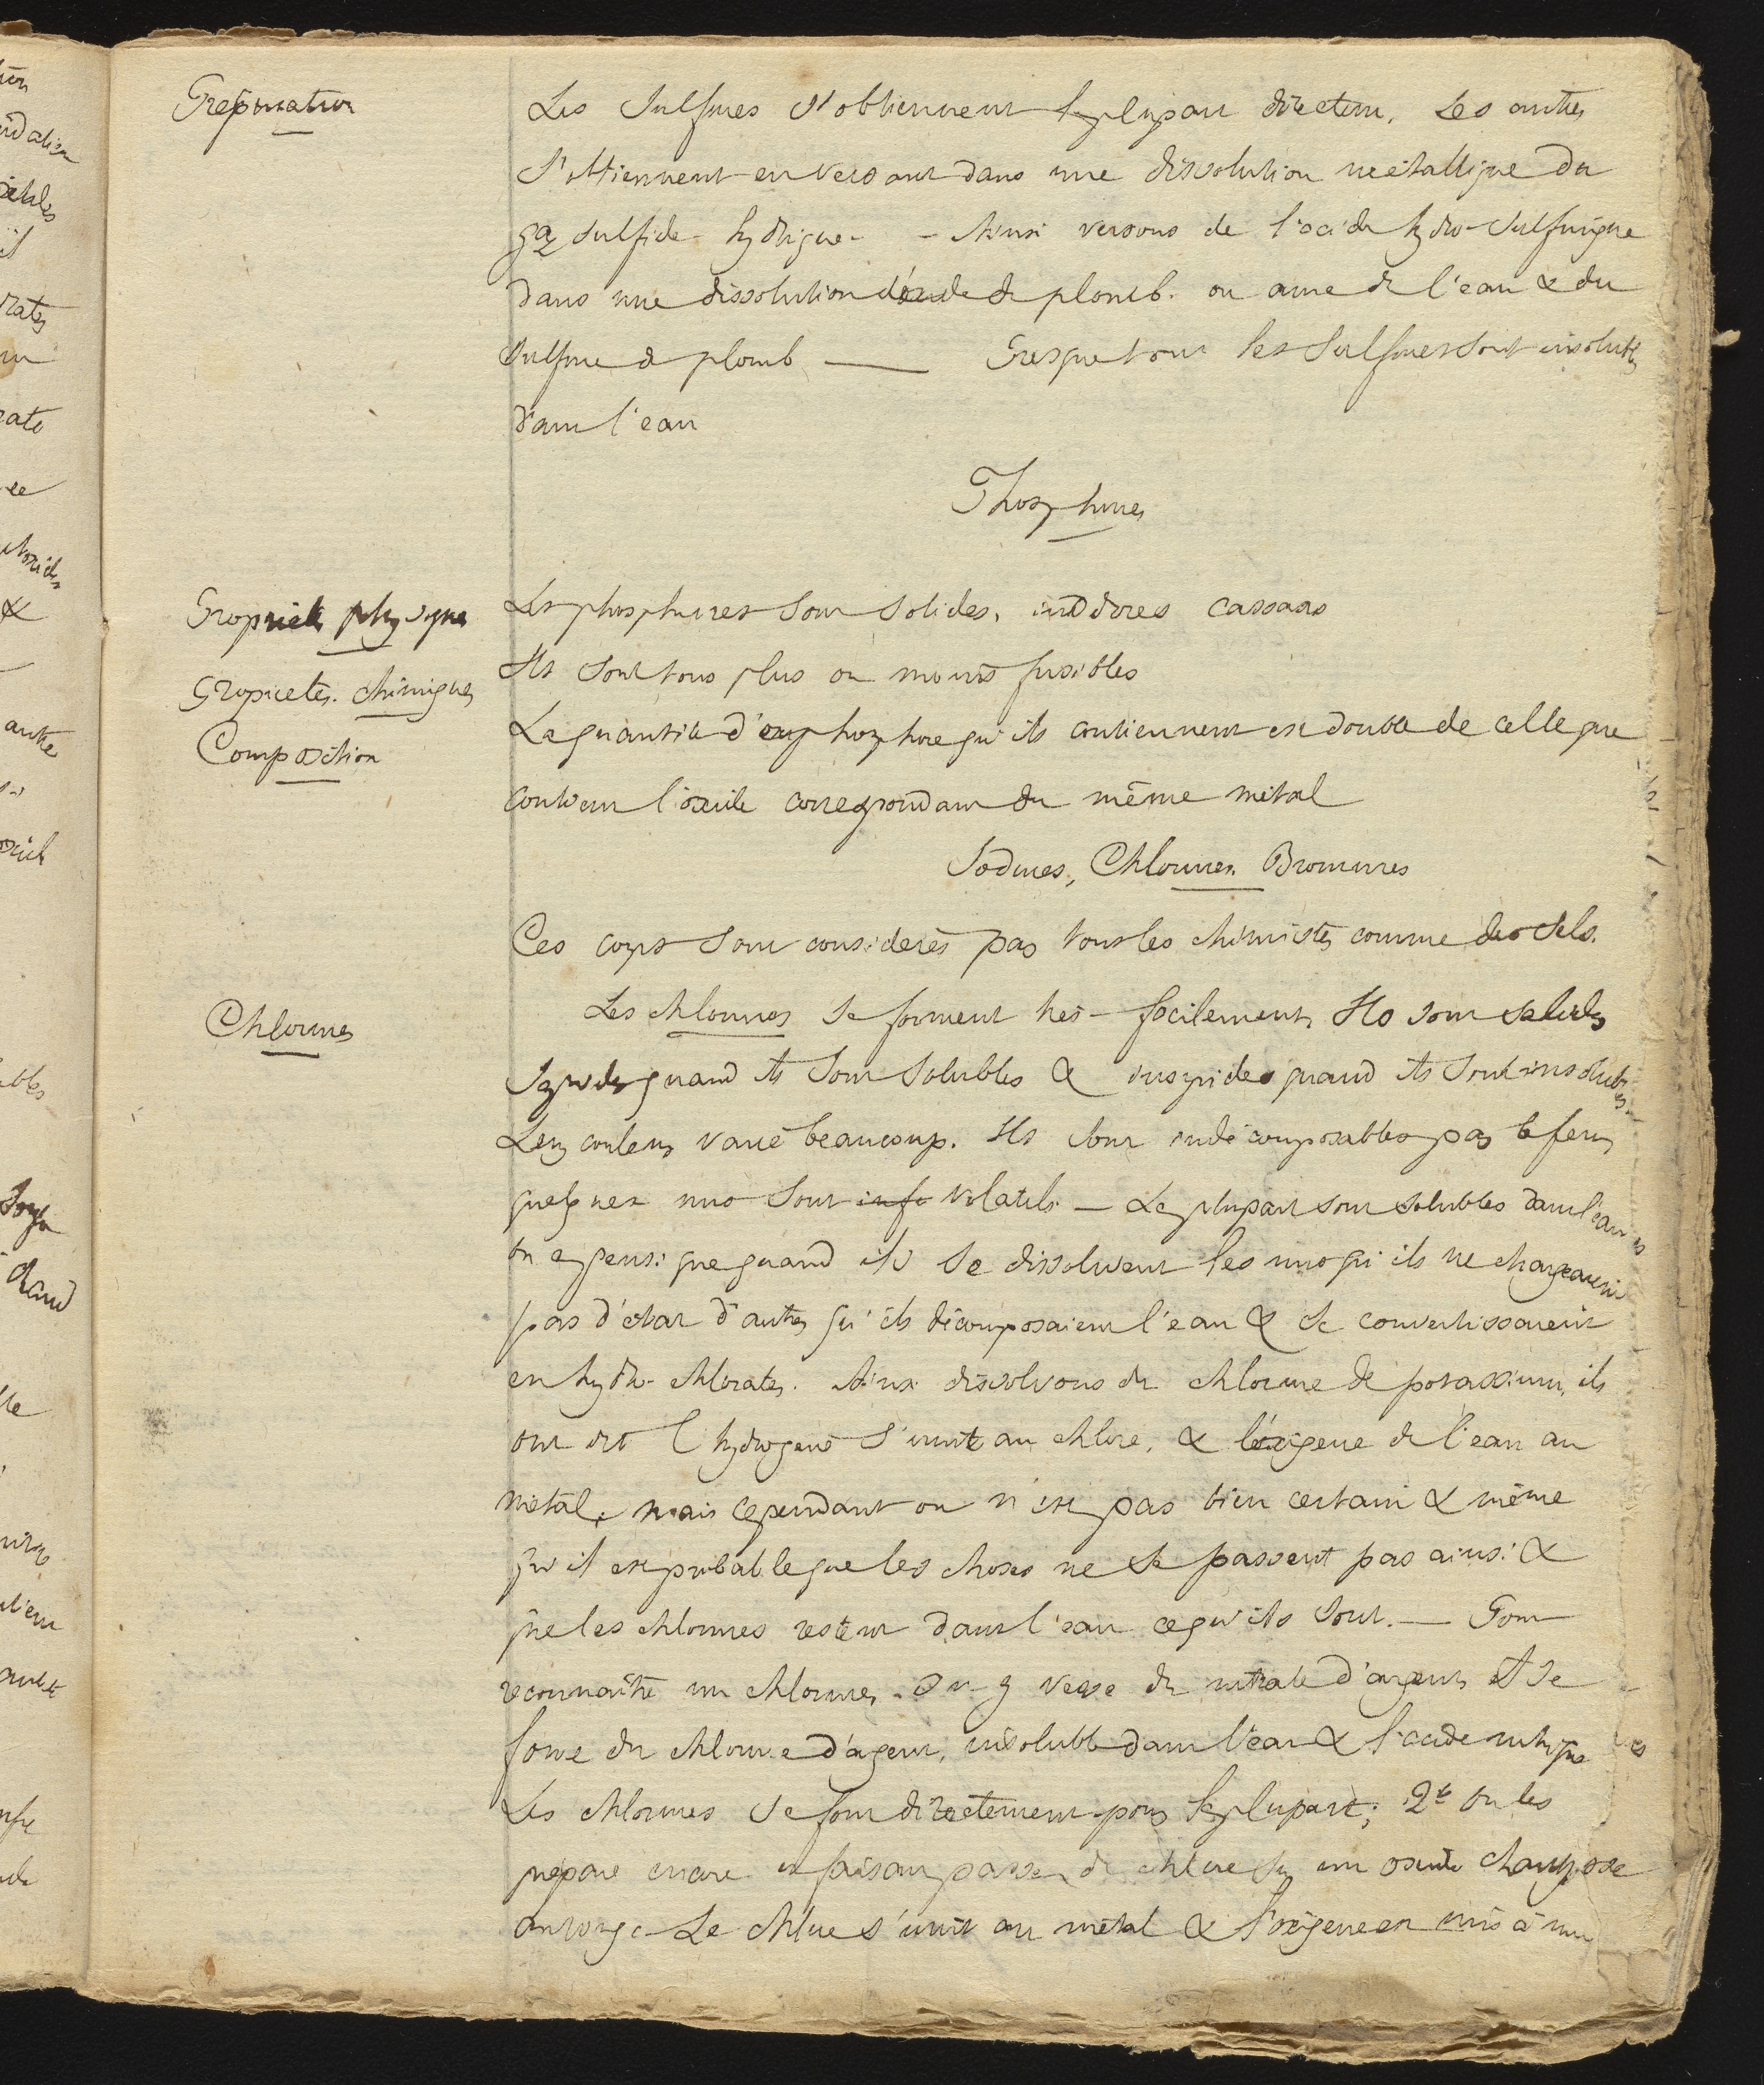 Préparation
Les Sulfures s'obtiennent la plupart directem. Les autres
s'obtiennent en versant dans une dissolution métallique du
gaz sulfide-hydrique - Ainsi versons de l'acide hydro-sulfurique
dans une dissolution d'oxide de plomb. on aura de l'eau & du
sulfure de plomb — Presque tous les Sulfures sont insolubles
dans l'eau
Phosphures
Propriétés physiques
Les phosphures sont solides, inodores cassans
Propriétés chimiques
Ils sont tous plus ou moins fusibles
Composition
La quantité de phosphore qu'ils contiennent est double de celle que
contient l'oxide correspondant du même métal
Iodures, Chlorures. Bromures
Ces corps sont considérés par tous les chimistes comme des Sels.
Chlorures
Les chlorures se forment très-facilement, Ils sont solides
Sapides quand ils sont solubles & insipides quand ils sont insolubles
Leur couleur varie beaucoup. Ils sont indécomposables par le feu,
quelques uns sont volatils — La plupart sont solubles dans l'eau
on a pensé que quand ils se dissolvent les uns qu'ils ne changeaient
pas d'état d'autres qu'ils décomposaient l'eau & se convertissaient
en hydro-chlorates. Ainsi dissolvons du chlorure de potassium, ils
ont dit l'hydrogène s'unit au chlore, & l'oxigène de l'eau au
métal, mais cependant on n'est pas bien certain & même
qu'il est probable que les choses ne se passent pas ainsi &
que les chlorures restent dans l'eau ce qu'ils sont. — Pour
reconnaître un chlorures. On y verse du nitrate d'argent, Il se
forme du chlorure d'argent, insoluble dans l'eau & l'acide nitrique
Les chlorures se font directement pour la plupart; 2° On les
prépare encore en faisant passer du chlore sur un oxide chauffé
au rouge - Le chlore s'unit au métal & l'oxigène est mis à nu